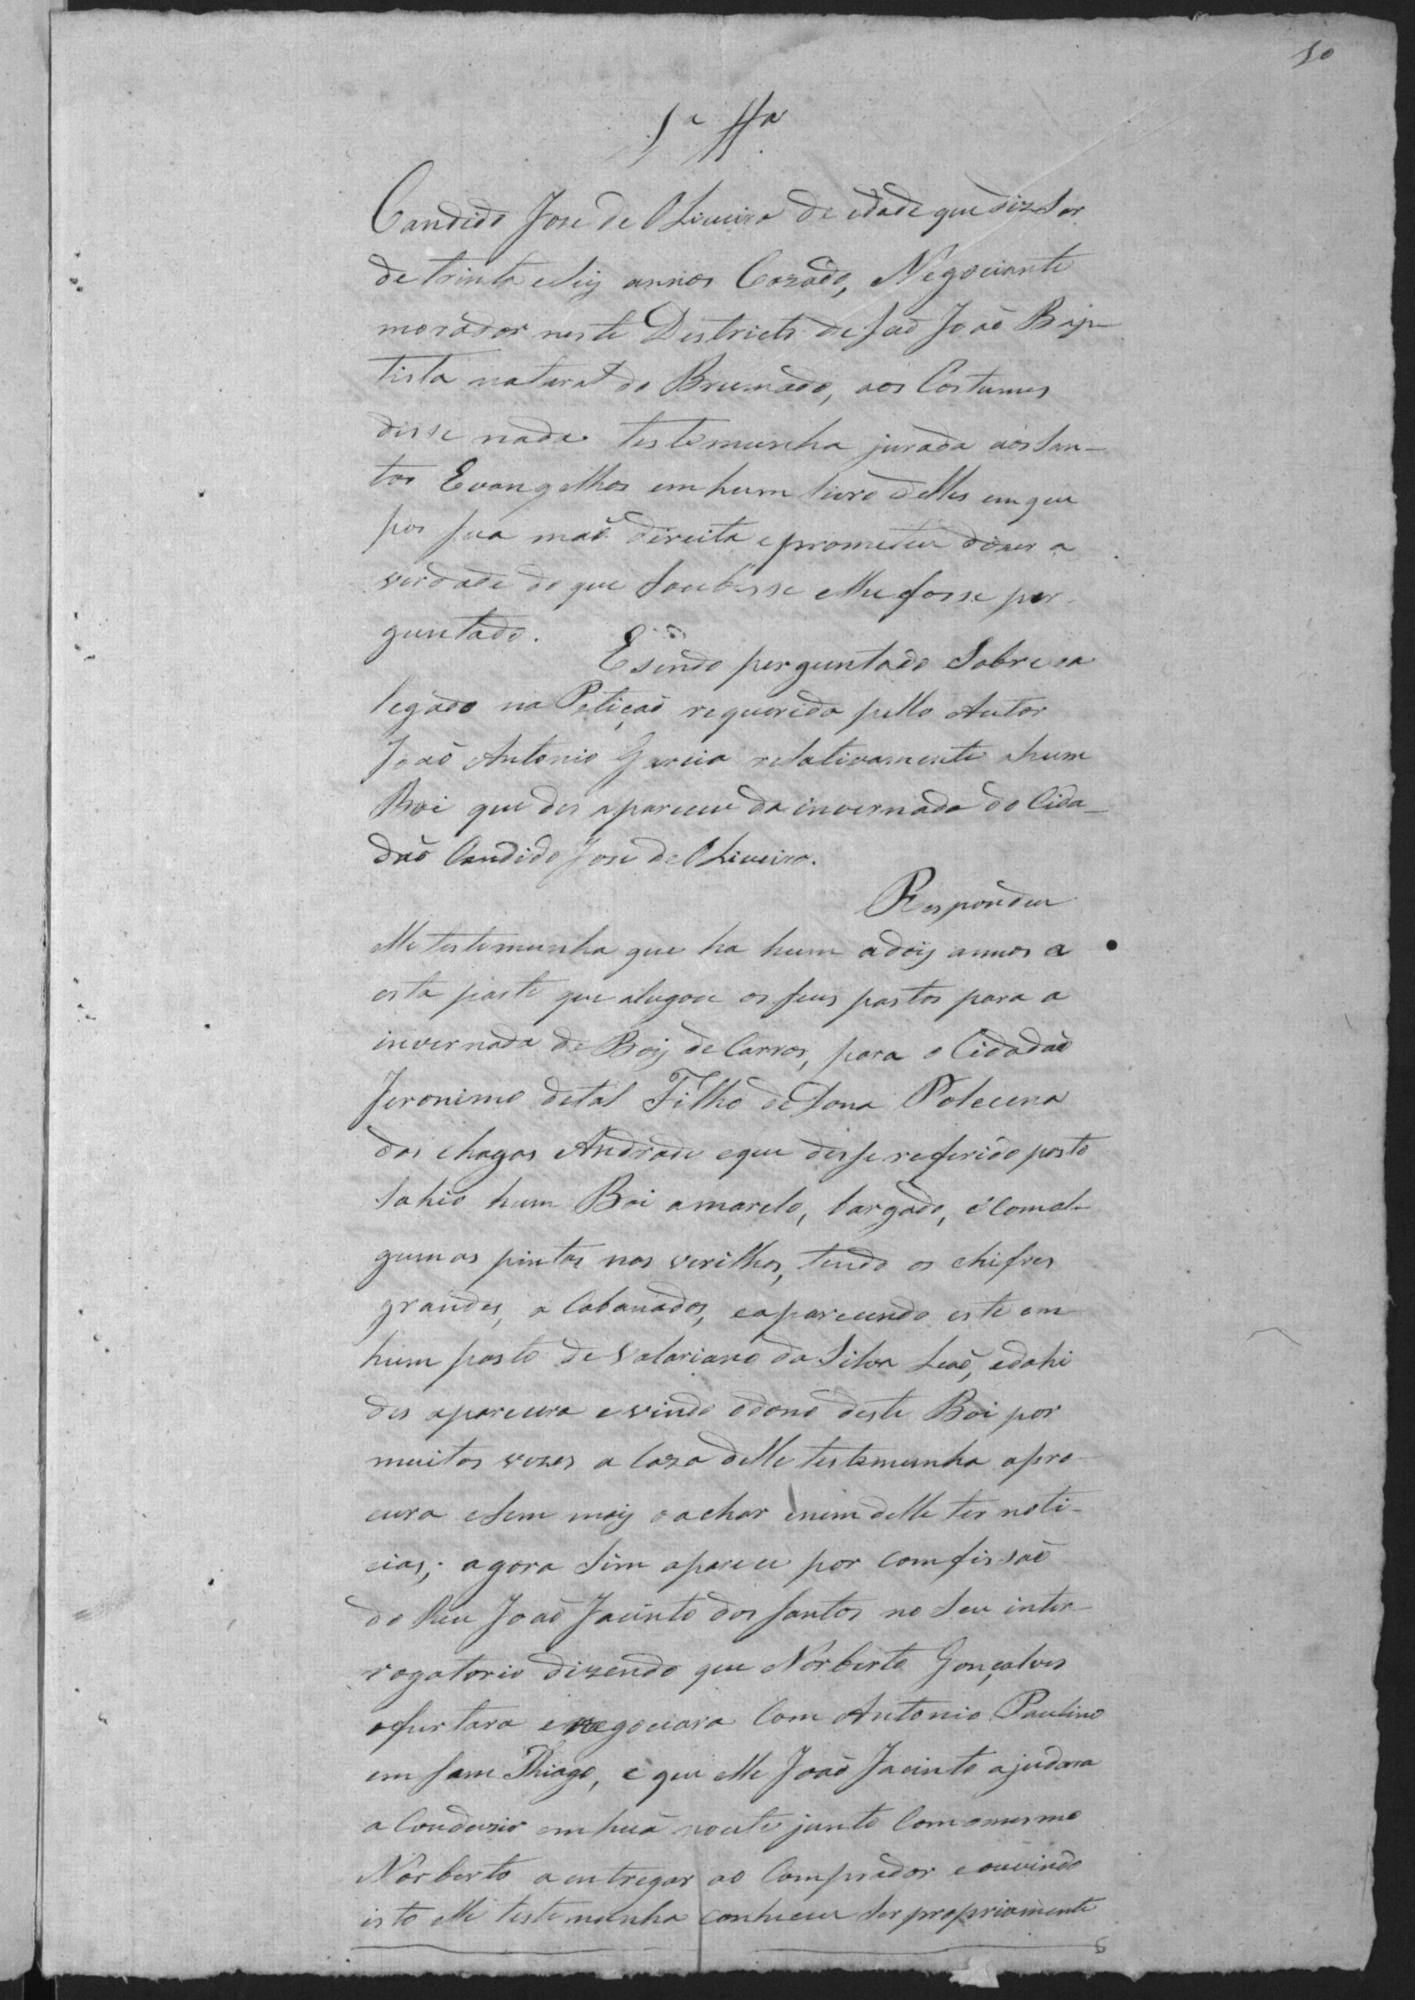 10
1ª Ttª
Candido Jose de Oliveira de idade que diz ser
de trinta e seis annos Cazado, Negociante
morador neste Destricto de São João Bap-
tista natural do Brumado, aos Costumes
disse nada testemunha jurada aos San-
tos Evangelhos em hum livro delles em que
pos sua mão direita e prometeu dizer a
verdade do que Soubesse e lhe fosse per-
guntado.
E sendo perguntado Sobre oa
legado na Petição requerida pello Autor
João Antonio Garcia relativamente ahum
Boi que des apareceu da invernada do Cida-
dão Candido Jose de Oliveira.
Respondeu
elle testemunha que ha hum a dois annos a
esta parte que alugou os seus pastos para a
invernada de Bois de Carros, para o Cidadão
Jeronimo de tal Filho de Dona Policena
das Chagas Andrade e que desse referido pasto
Sahio hum Boi amarelo, bargado, e Comal-
gumas pintas nas verilhas, tendo os chifres
grandes, a Cabanados, e aparecendo este em
hum pasto de Valariano da Silva Leão, e dahi
des aparecera e vindo o dono deste Boi por
muitas vezes a Caza delle testemunha apro-
cura e Sem mais o achar enem delle ter noti-
cias; agora Sim apareceu por Comfissão
do Reu João Jacinto dos Santos no Seu inter-
rogatorio dizendo que Norberto Gonçalves
ofurtara e negociara Com Antonio Paulino
em Sam Thiago, e que elle João Jacinto ajudara
a Conduzir em huã noute junto Comomesmo
Norberto a entregar ao Comprador e ouvindo
isto elle testemunha conheceu Ser propriamente